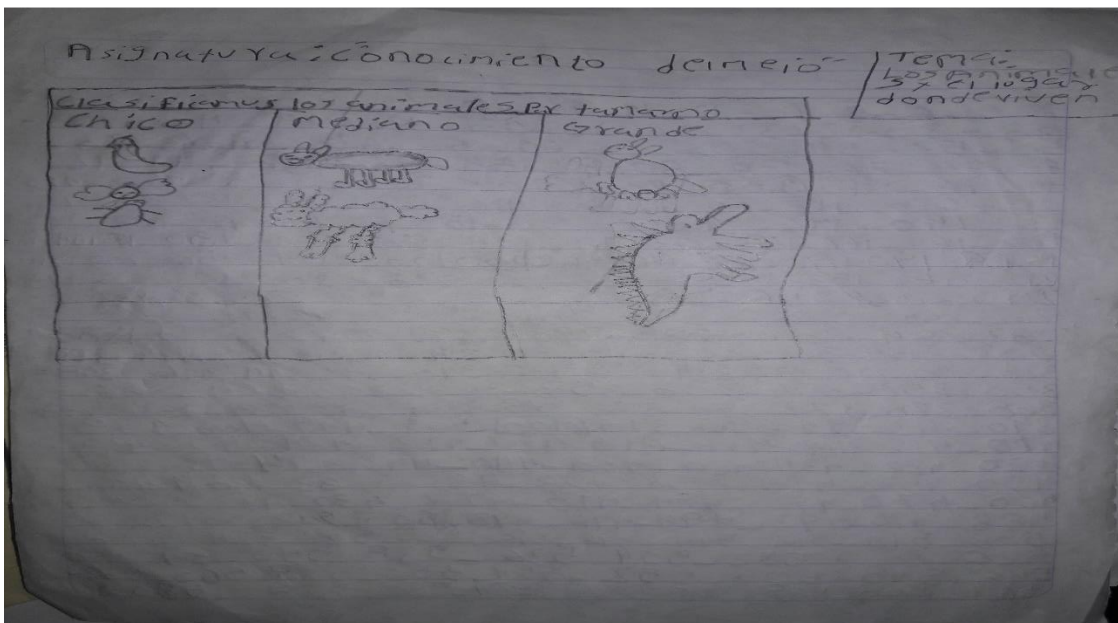 Asignatura: Conocimiento del meio
Tema:
Los animale
s y el lugar
donde viven
Clasificamos los animales Por tamano
Chico
mediano
Grande